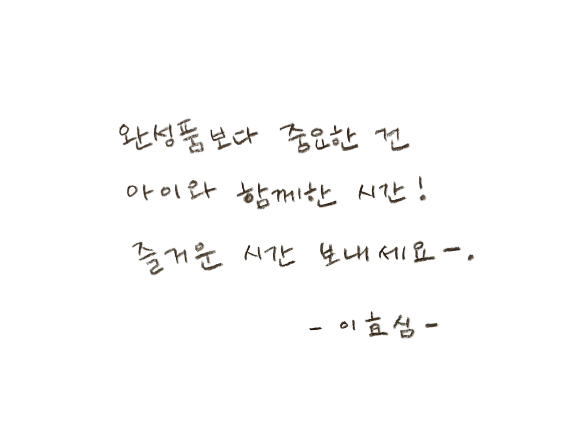 완성품보다 중요한 건
아이와 함께한 시간!
즐거운 시간 보내세요-.
- 이효심 -